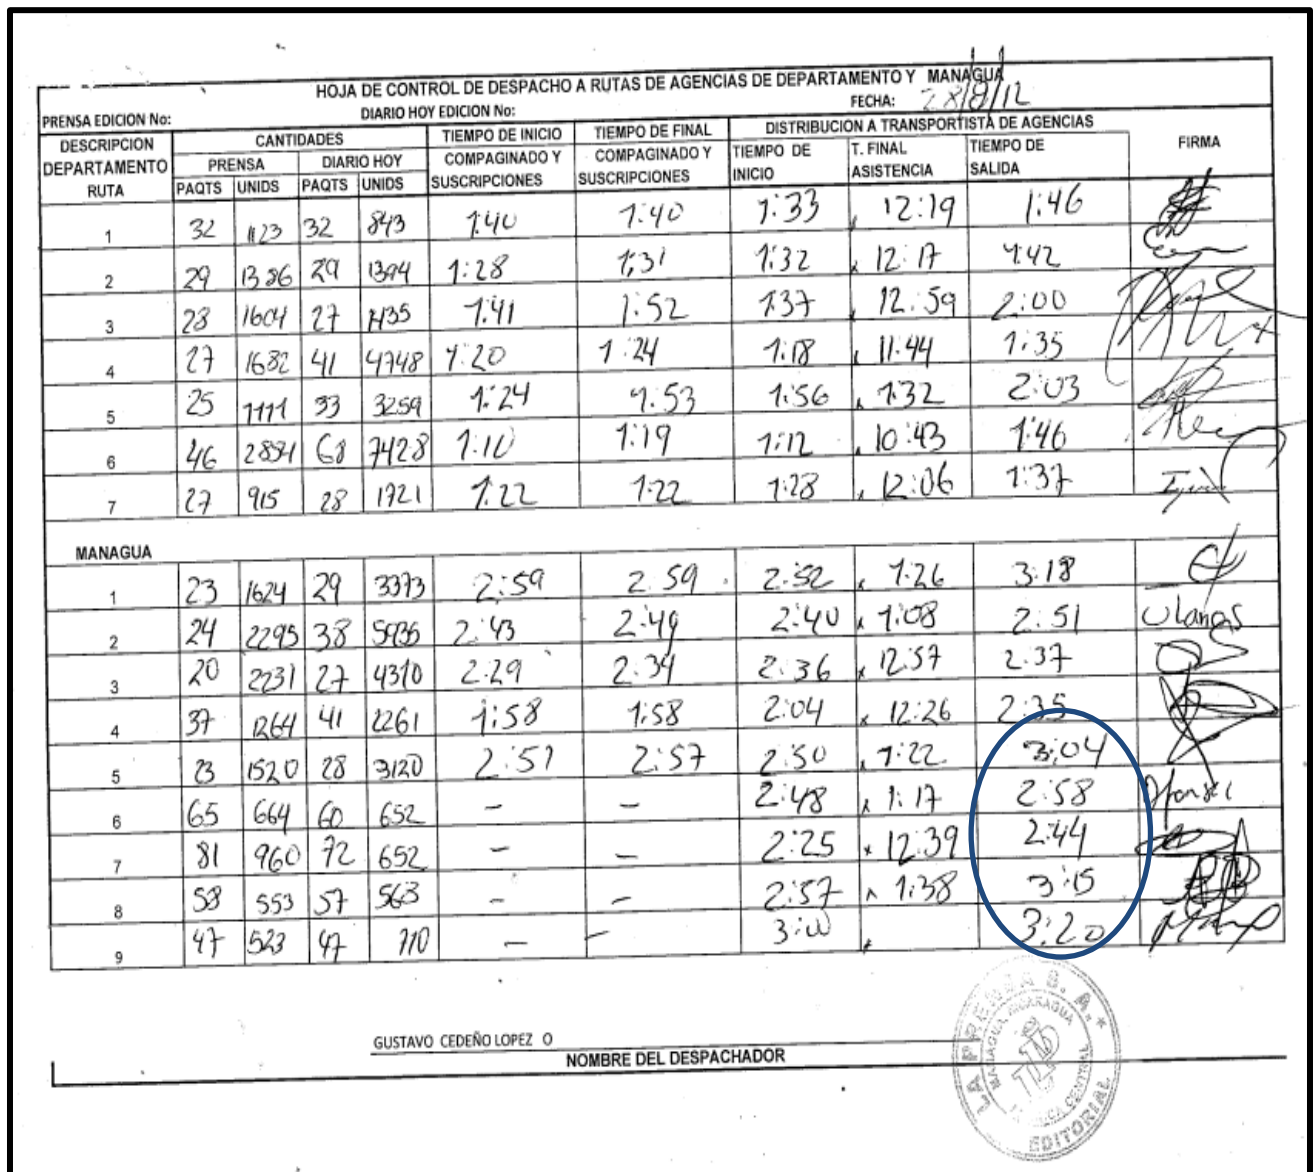 HOJA DE CONTROL DE DESPACHO A RUTAS DE AGENCIAS DE DEPARTAMENTO Y MANAGUA
PRENSA EDICION No: DIARIO HOY EDICION No: FECHA: 28/8/12
DESCRIPCION DEPARTAMENTO RUTA
CANTIDADES
PRENSA DIARIO HOY
PAQTS UNIDS PAQTS UNIDS
TIEMPO DE INICIO COMPAGINADO Y SUSCRIPCIONES
TIEMPO DE FINAL COMPAGINADO Y SUSCRIPCIONES
DISTRIBUCION A TRANSPORTISTA DE AGENCIAS
TIEMPO DE INICIO
T. FINAL ASISTENCIA
TIEMPO DE SALIDA
FIRMA
1 32 1123 32 843 1:40 1:40 1:33 12:19 1:46
2 29 1386 29 1394 1:28 1:31 1:32 12:17 1:42
3 28 1604 27 1435 1:41 1:52 1:37 12:59 2:00
4 27 1682 41 4748 1:20 1:24 1:18 11:44 1:35
5 25 1111 33 3259 1:24 1:53 1:56 1:32 2:03
6 46 2884 68 7428 1:10 1:19 1:12 10:43 1:46
7 27 915 28 1721 1:22 1:22 1:28 12:06 1:37
MANAGUA
1 23 1624 29 3373 2:59 2:59 2:52 1:26 3:18
2 24 2295 38 2:43 2:49 2:40 1:08 2:51
3 20 2231 27 4310 2:29 2:34 2:36 12:57 2:37
4 37 1264 41 2261 1:58 1:58 2:04 12:26 2:35
5 23 1520 28 3120 2:57 2:57 2:50 1:22 3:04
6 65 664 60 652 - - 2:48 1:17 2:58
7 81 960 72 652 - - 2:25 12:39 2:44
8 58 553 57 563 - - 2:57 1:38 3:15
9 47 523 47 710 - - 3:00 3:20
GUSTAVO CEDEÑO LOPEZ O
NOMBRE DEL DESPACHADOR
LA PRENSA S. A.
MANAGUA, NICARAGUA
EDITORIAL